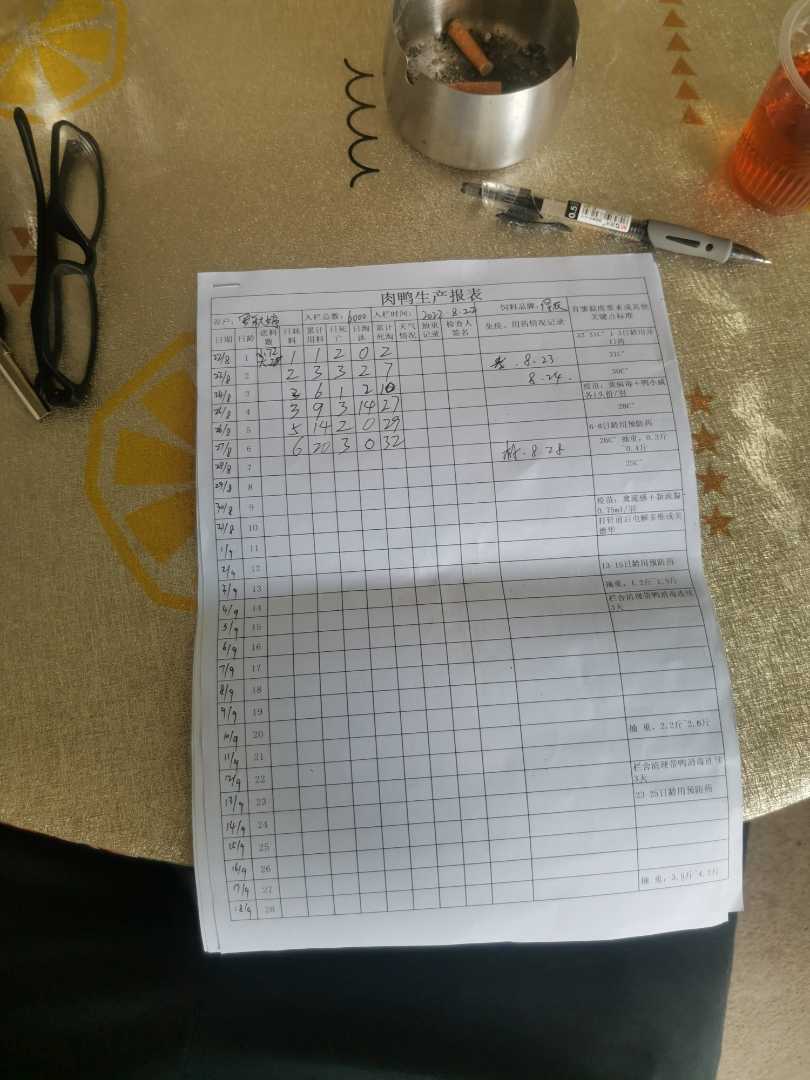 0.5
肉鸭生产报表
农户: 入栏总数: 6000 入栏时间: 2022 8.22 饲料品牌: 育雏温度要求或其他关键点标准
日期 日龄 送料数 日耗料 累计用料 日死亡 日淘汰 累计死淘 天气情况 抽重记录 检查人签名 免疫、用药情况记录
22/8 1 1 1 2 0 2 1-3日龄用开口药
23/8 2 2 3 3 2 7 8.23 31C°
24/8 3 3 6 1 2 10 8.24. 30C°
25/8 4 3 9 3 14 27 28C°
26/8 5 5 14 2 0 29 6-8日龄用预防药
27/8 6 6 20 3 0 32 8.28 26C° 抽重:0.3斤~0.4斤
28/8 7 25C°
29/8 8
30/8 9 疫苗:
31/8 10 打针前后电解多维或
1/9 11
2/9 12 13-15日龄用预防药
3/9 13 抽重:1.2斤~1.5斤
4/9 14 栏舍清理带鸭消毒连续3天
5/9 15
6/9 16
7/9 17
8/9 18
9/9 19
10/9 20 抽重:2.2斤~2.6斤
11/9 21
12/9 22 栏舍清理带鸭消毒连续3天
13/9 23 23-25日龄用预防药
14/9 24
15/9 25
16/9 26
17/9 27 抽重:
18/9 28